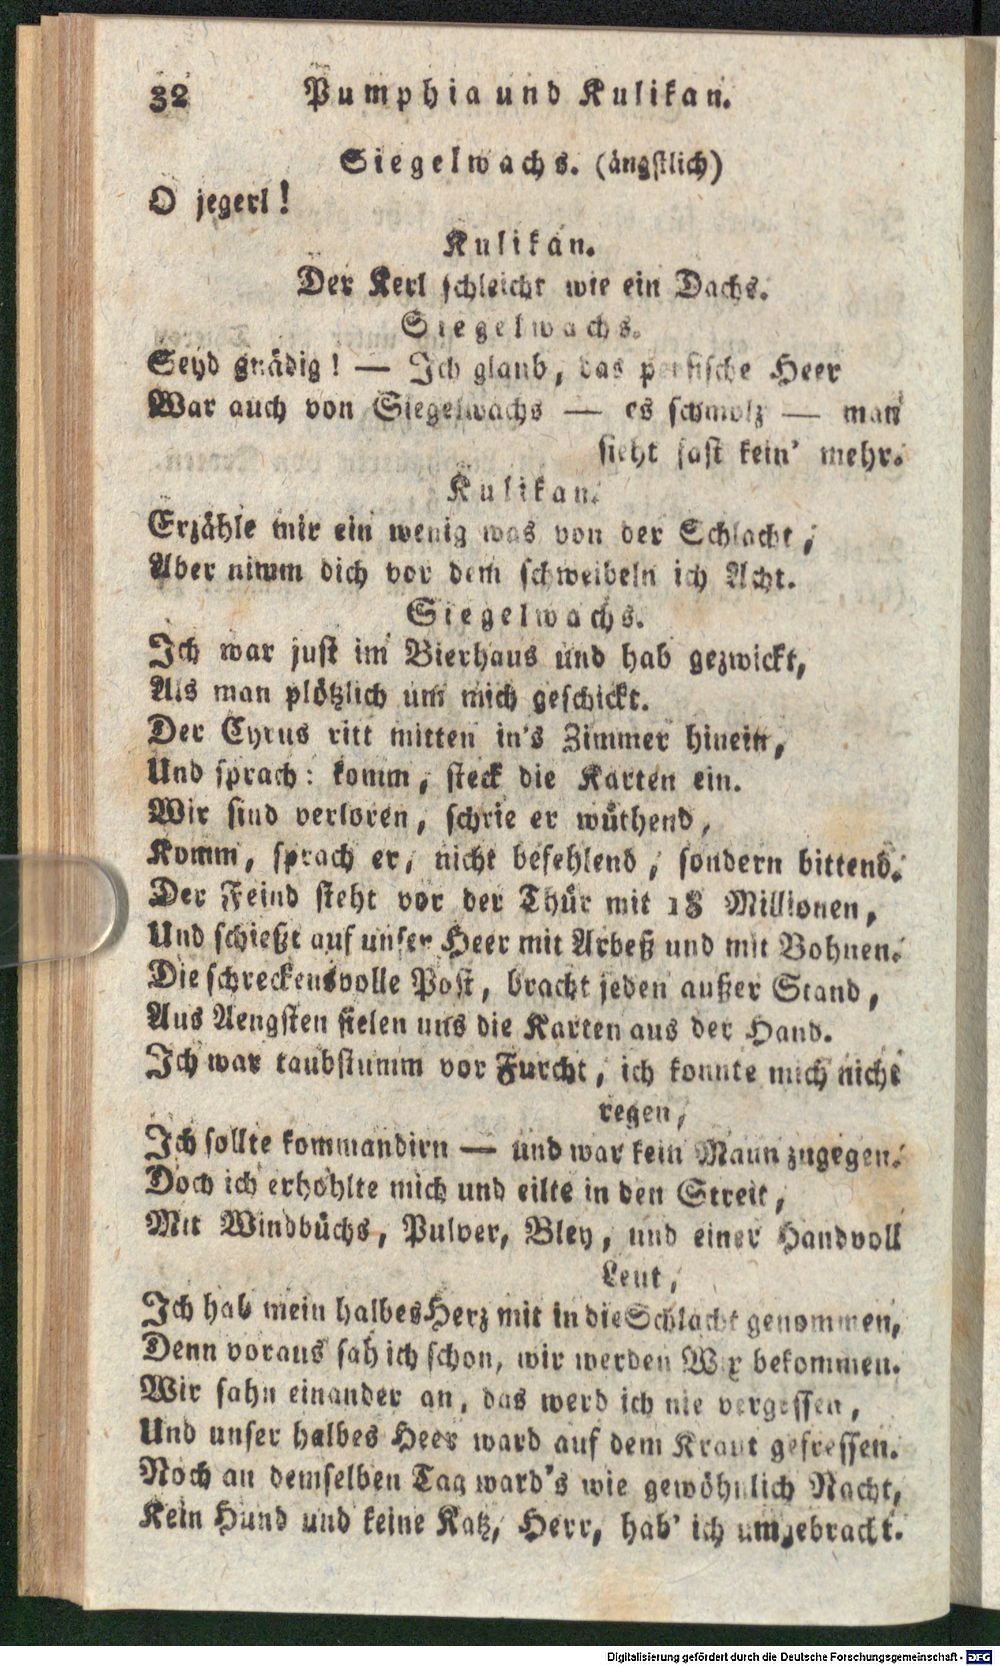 32 Pumphia und Kulikan.
Siegelwachs. (ängstlich)
O jegerl!
Kulikan.
Der Kerl schleicht wie ein Dachs.
Siegelwachs.
Seyd gnädig! — Ich glaub, das persische Heer
War auch von Siegelwachs — es schmolz — man
sieht fast kein' mehr.
Kulikan.
Erzähle mir ein wenig was von der Schlacht,
Aber nimm dich vor dem schweibeln ich Acht.
Siegelwachs.
Ich war just im Bierhaus und hab gezwickt,
Als man plötzlich um mich geschickt.
Der Cyrus ritt mitten in's Zimmer hinein,
Und sprach: komm, steck die Karten ein.
Wir sind verloren, schrie er wüthend,
Komm, sprach er, nicht befehlend, sondern bittend.
Der Feind steht vor der Thür mit 18 Millionen,
Und schießt auf unser Heer mit Arbeß und mit Bohnen.
Die schreckensvolle Post, bracht jeden außer Stand,
Aus Aengsten fielen uns die Karten aus der Hand.
Ich war taubstumm vor Furcht, ich konnte mich nicht
regen,
Ich sollte kommandirn — und war kein Mann zugegen.
Doch ich erhohlte mich und eilte in den Streit,
Mit Windbüchs, Pulver, Bley, und einer Handvoll
Leut,
Ich hab mein halbes Herz mit in die Schlacht genommen,
Denn voraus sah ich schon, wir werden Wix bekommen.
Wir sahn einander an, das werd ich nie vergessen,
Und unser halbes Heer ward auf dem Kraut gefressen.
Noch an demselben Tag ward's wie gewöhnlich Nacht,
Kein Hund und keine Katz, Herr, hab' ich umgebracht.
Digitalisierung gefördert durch die Deutsche Forschungsgemeinschaft - DFG